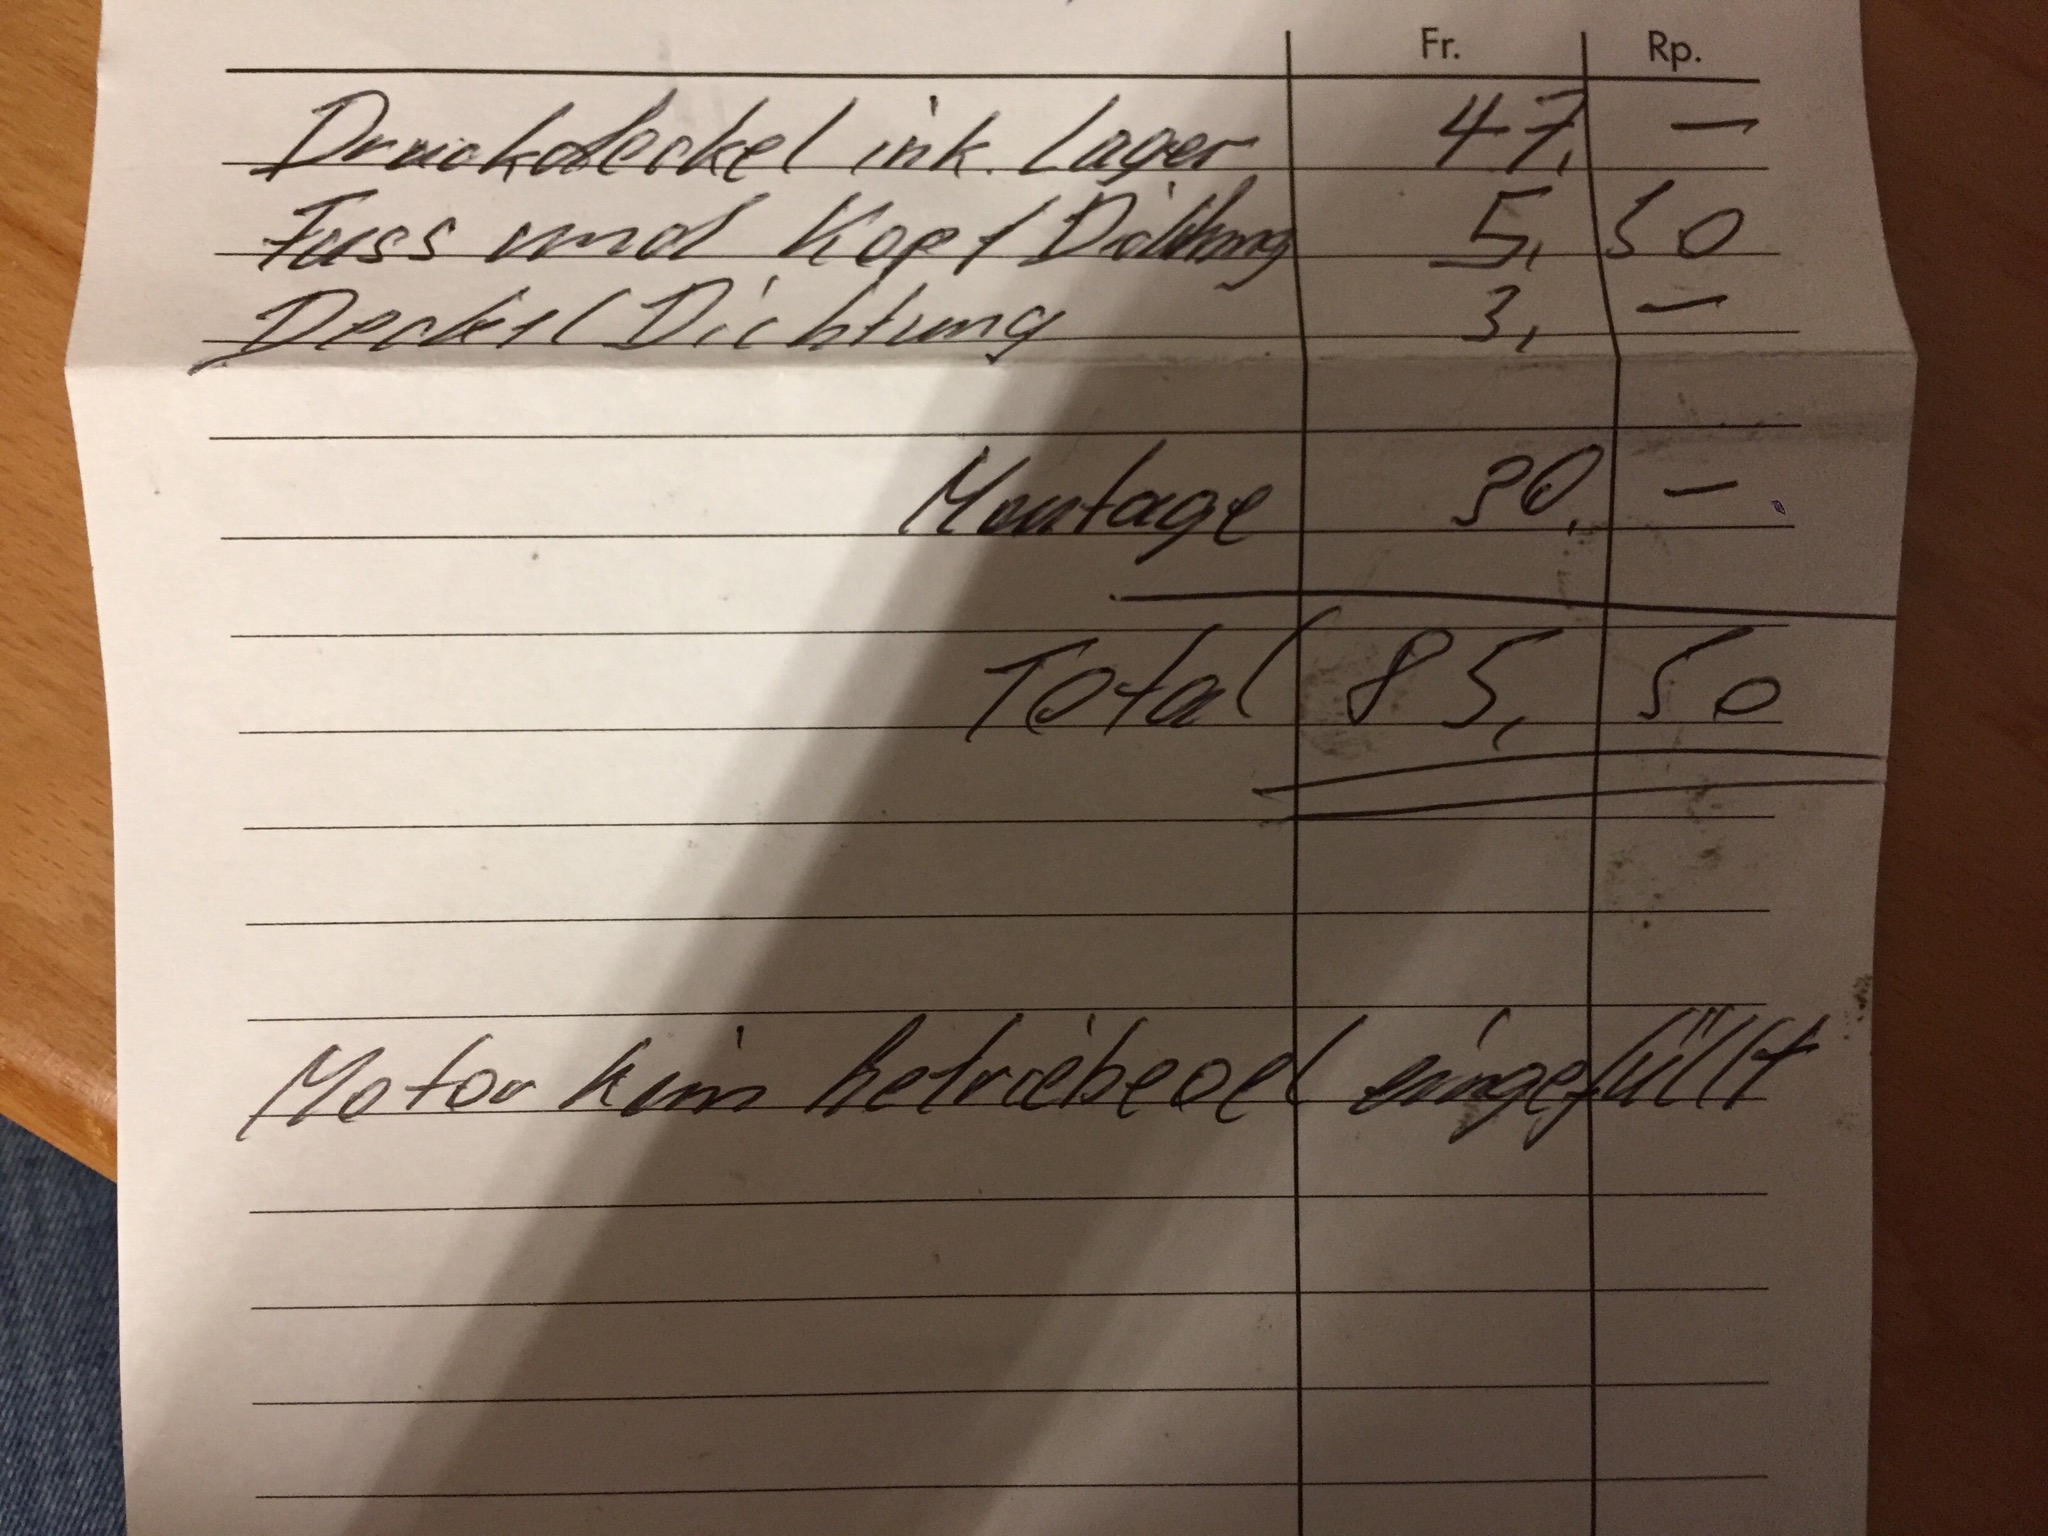 Fr. Rp.
Druckdeckel ink. Lager 47, —
Fuss und Kopf Dichtung 5, 50
Deckel Dichtung 3, —
Montage 30, —
Total 85, 50
Motor kein betriebsoel eingefüllt